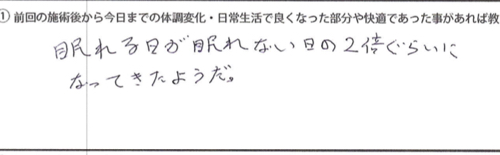 ① 前回の施術後から今日までの体調変化・日常生活で良くなった部分や快適であった事があれば教
眠れる日が眠れない日の2倍ぐらいに
なってきたようだ。